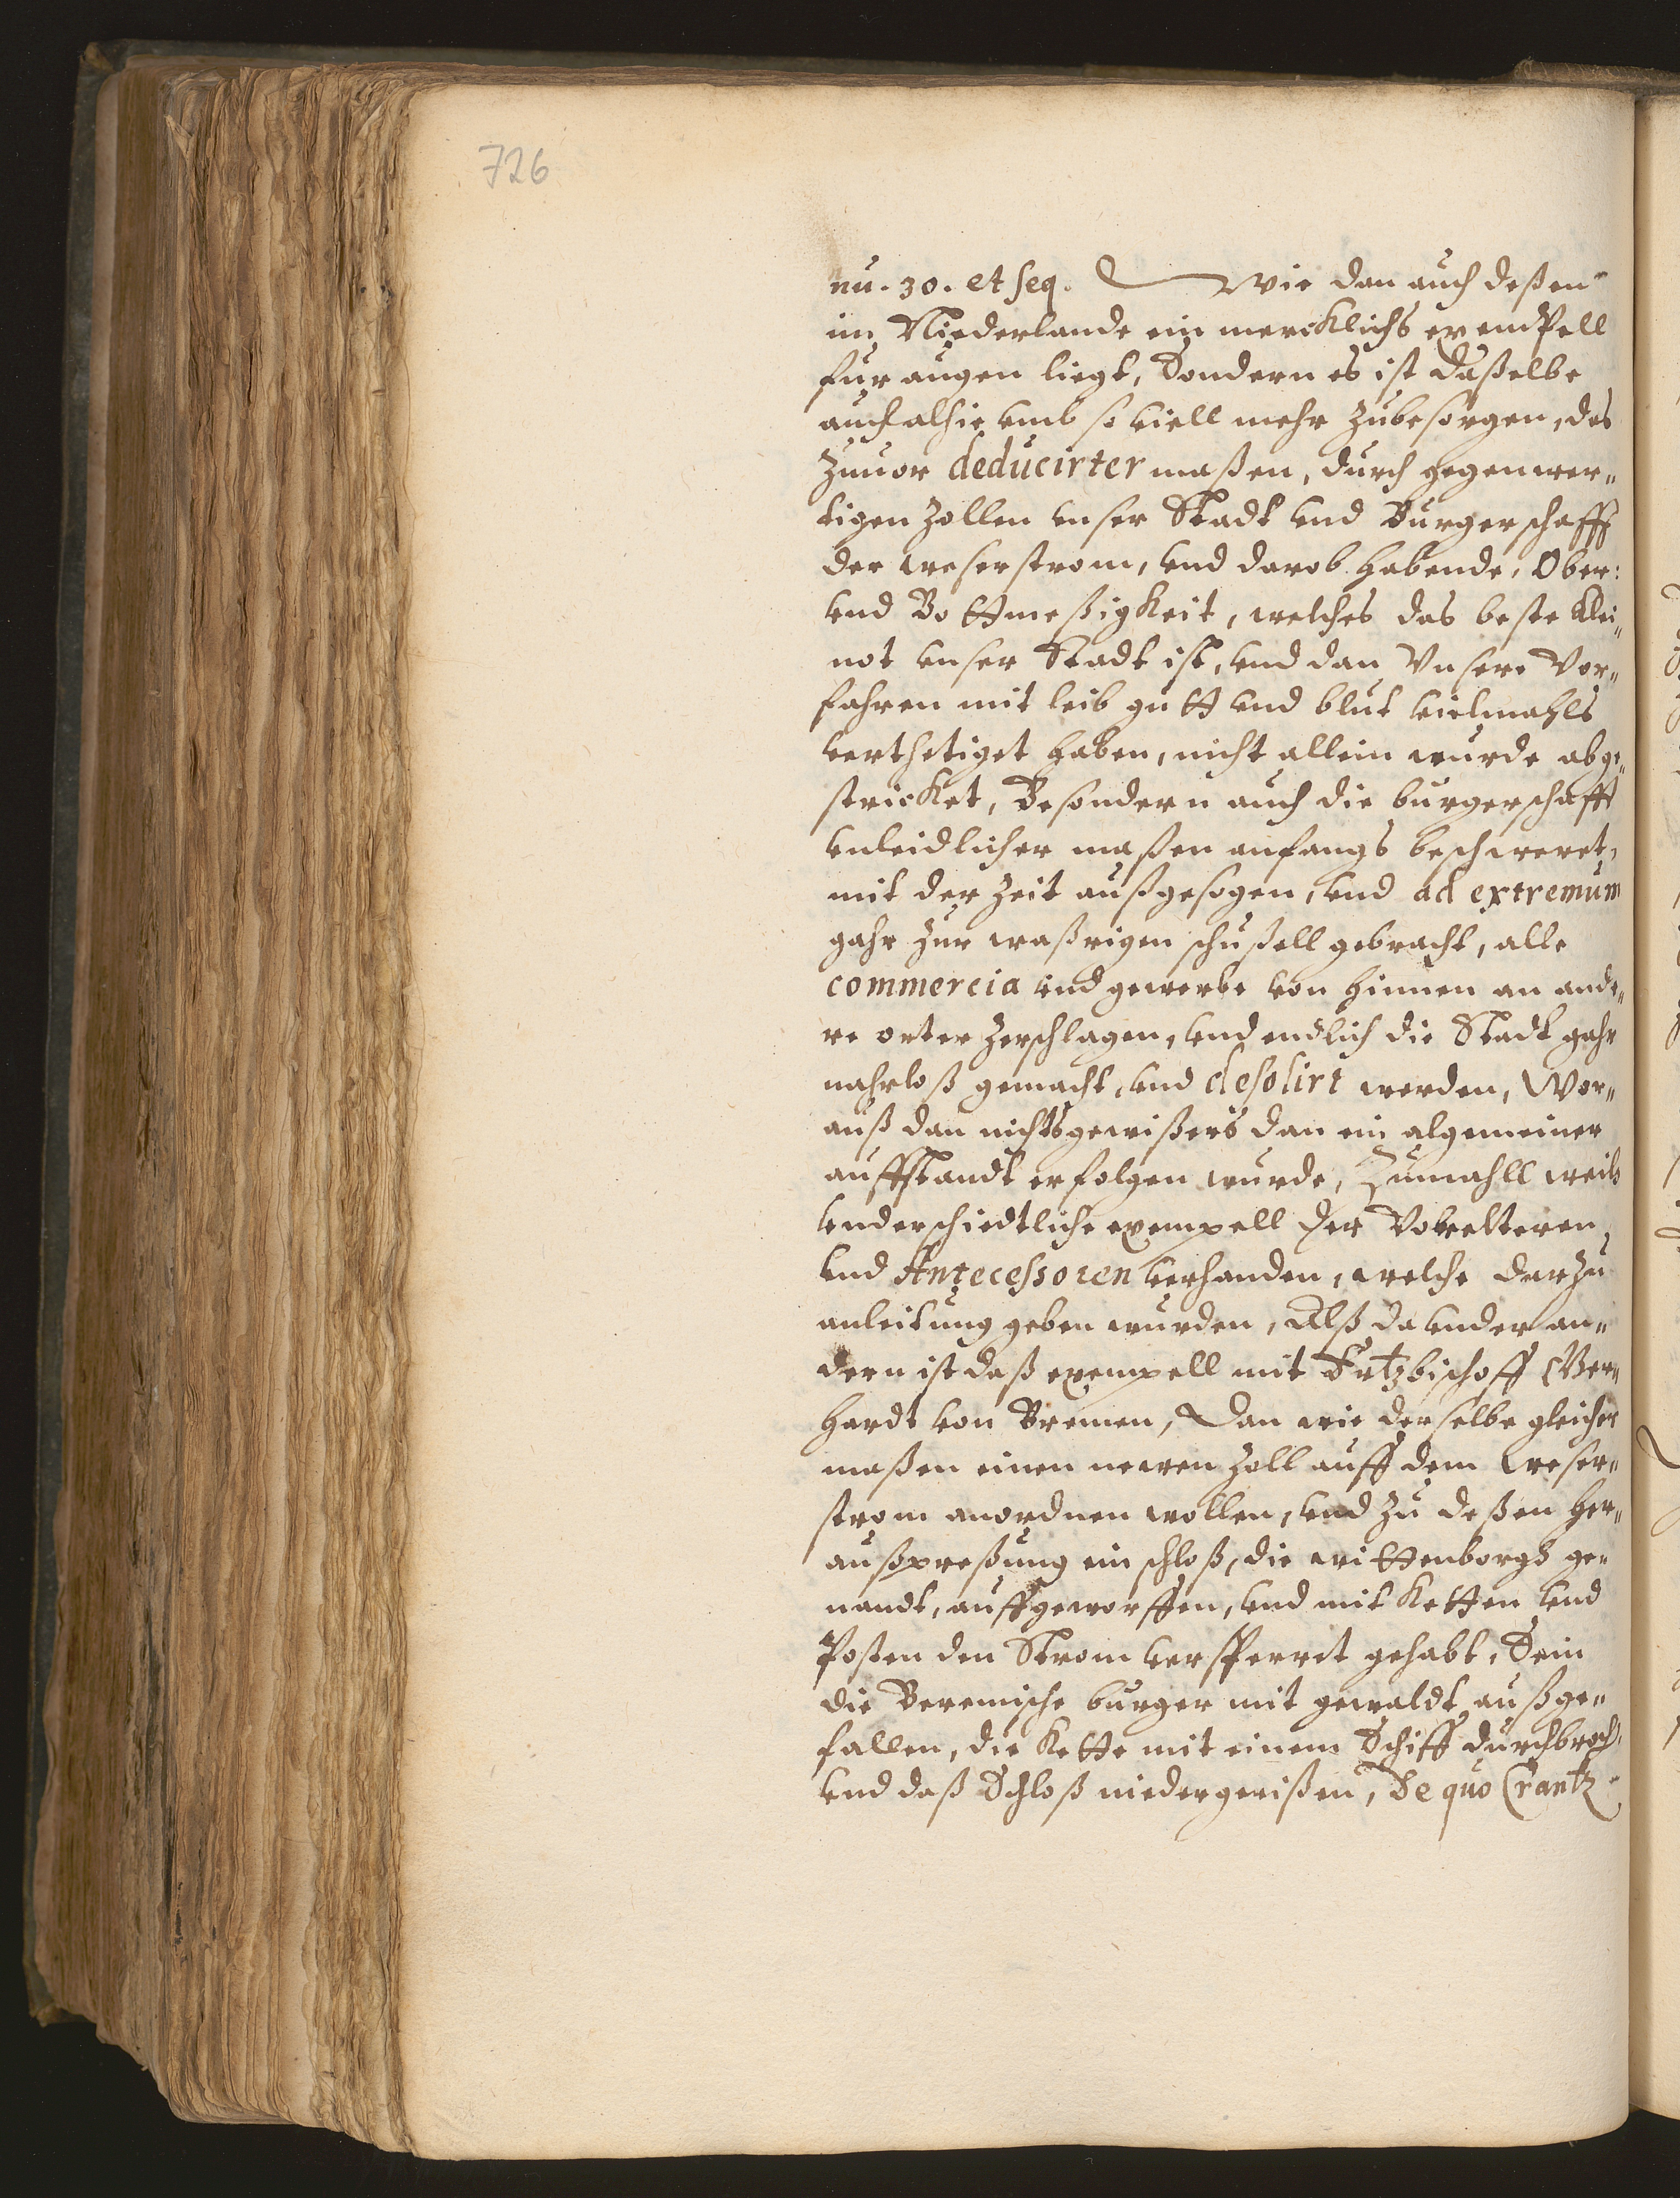 726
nu. 30. et seq. Wie dan auch deßen
im Niederlande ein mercklichs exempell
fur augen liegt, Sondern es ist daßelbe
auch alhie vmb so viell mehr zubesorgen, das
zuuor deducirter maßen, durch gegenwer„
tigen Zollen vnser Stadt vnd Burgerschafft
der weserstrom, vnd darob habende, Ober:
vnd Bottmeßigkeit, welches das beste klei„
not vnser Stadt ist, vnd dan Vnsere Vor„
fahren mit leib gutt vnd blut vielmahls
verthetiget haben, nicht allein wurde abge„
stricket, Besondern auch die burgerschafft
vnleidlicher maßen anfangs beschweret,
mit der Zeit außgesogen, vnd ad extremum
gahr zur waßrigen schußell gebracht, alle
commercia vnd gewerbe von hinnen an ande„
re orter zerschlagen, vnd endlich die Stadt gahr
nahrloß gemacht, vnd desolirt werden, Wor„
auß dan nichts gewißers dan ein algemeiner
auffstandt erfolgen wurde, Zumahll weils
vnderschiedtliche exempell der Vorelteren
vnd Antecessoren verhanden, welche darzu
anleitung geben wurden, Alß da vnder an„
dern ist daß exempell mit Ertzbischoff Ger„
hardt von Bremen, Dan wie derselbe gleicher
maßen einen newen Zoll auff dem weser„
strom anordnen wollen, vnd zu deßen her„
außpreßung ein schloß, die wittenborgh ge„
nandt, auffgeworffen, vnd mit ketten vnd
Posten den Strom versperret gehabt, Sein
die Beremische burger mit gewaldt außge„
fallen, die kette mit einem Schiff durchbroch.
vnd daß Schloß niedergerißen, De quo Crantz